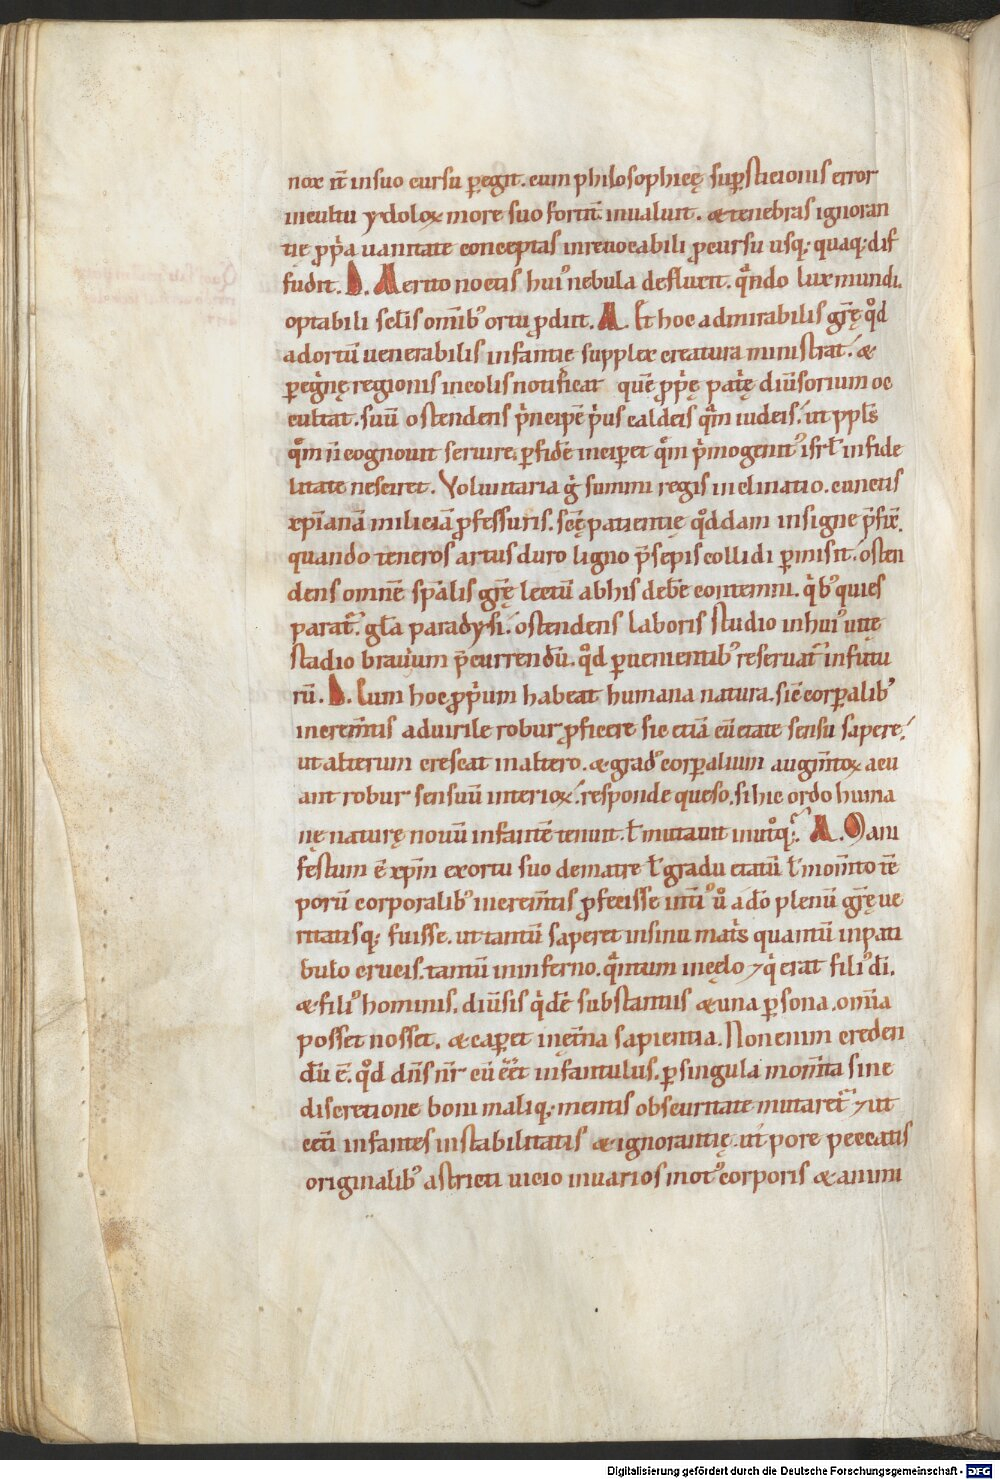 nox it̄ in suo cursu ꝑegit. cum philosophicę suꝑsticionis error
in cultu ydoloꝝ more suo fortit̄ inualuit. & tenebras ignoran
tie ꝓpͥa uanitate conceptas inreuocabili ꝓcursu usq; quaq; dif
fudit. D. Merito noctis hui᷒ nebula defluxit. qͣndo lux mundi.
optabili sclis omnib᷒ ortu ꝓdiit. M. Et hoc admirabilis grę̄ qͦd
ad ortū uenerabilis infantie supplex creatura ministrat. &
ꝑegͥnę regionis incolis notificat quē ꝓpͥę patͥę diūsorium oc
cultat. suū ostendens pͥncipē pͥus caldeis qͣm iudeis. ut ppl̄s
qͦm n̄ cognouit seruire. ꝑfidē inciꝑet qͦm pͥmogenit᷒ isrl̄ infide
litate nesciret. Voluntaria gͥ summi regis inclinatio. cunctis
xp̄ianā miliciā ꝓfessuris. scę̄ patientię qͦddam insigne p̄fix̄.
quando teneros artus duro ligno p̄sepis collidi ꝑmisit. osten
dens omnē sp̄alis grę̄ lectū ab his debe̅ contemni. qͥb᷒ quies
parat̄. gl̄a paradysi. ostendens laboris studio in hui᷒ uitę
stadio brauium p̄currendū. qͦd ꝑuenientib᷒ reseruat̄ infinitu
rū. D. Cum hoc ꝓpͥum habeat humana natura. sic̄ corꝑalib᷒
increm̄tis ad uirile robur ꝓficere sic etiā cū etate sensu sapere.
ut alterum crescat in altero. & grad᷒ corꝑalium augm̄toꝝ aeu
ant robur sensuū interioꝝ. responde queso. si hic ordo huma
nę naturę nouū infantē tenuit. l̄ mutauit in utͦq;. M. Mani
festum ē xp̄m exortu suo de matre l̄ gradu etatū l̄ mom̄to tē
porū corporalib᷒ increm̄tis ꝓfecisse inim᷒ uͦ ado plenū grę̄ ue
ritatisq; fuisse. ut tantū saperet in sinu matͥs quantū in pati
bulo crucis. tantū in inferno. qͣntum in cęlo ⁊ qͥ erat fili᷒ dī.
& fili᷒ hominis. diūsis qͥdē substantiis & una ꝑsona. om̄ia
posset nosset. & caꝑet in ęt̄na sapientia. Non enim creden
dū ē. qͦd dn̄s nr̄ cū eēt infantulus. ꝑ singula mom̄ta sine
discretione boni maliq; mentis obscuritate mutaret̄ ⁊ ut
cet̄i infantes instabilitatis & ignorantię. utpore peccatis
originalib᷒ astricti uicio in uarios mot᷒ corporis & animi
Digitalisierung gefördert durch die Deutsche Forschungsgemeinschaft - DFG